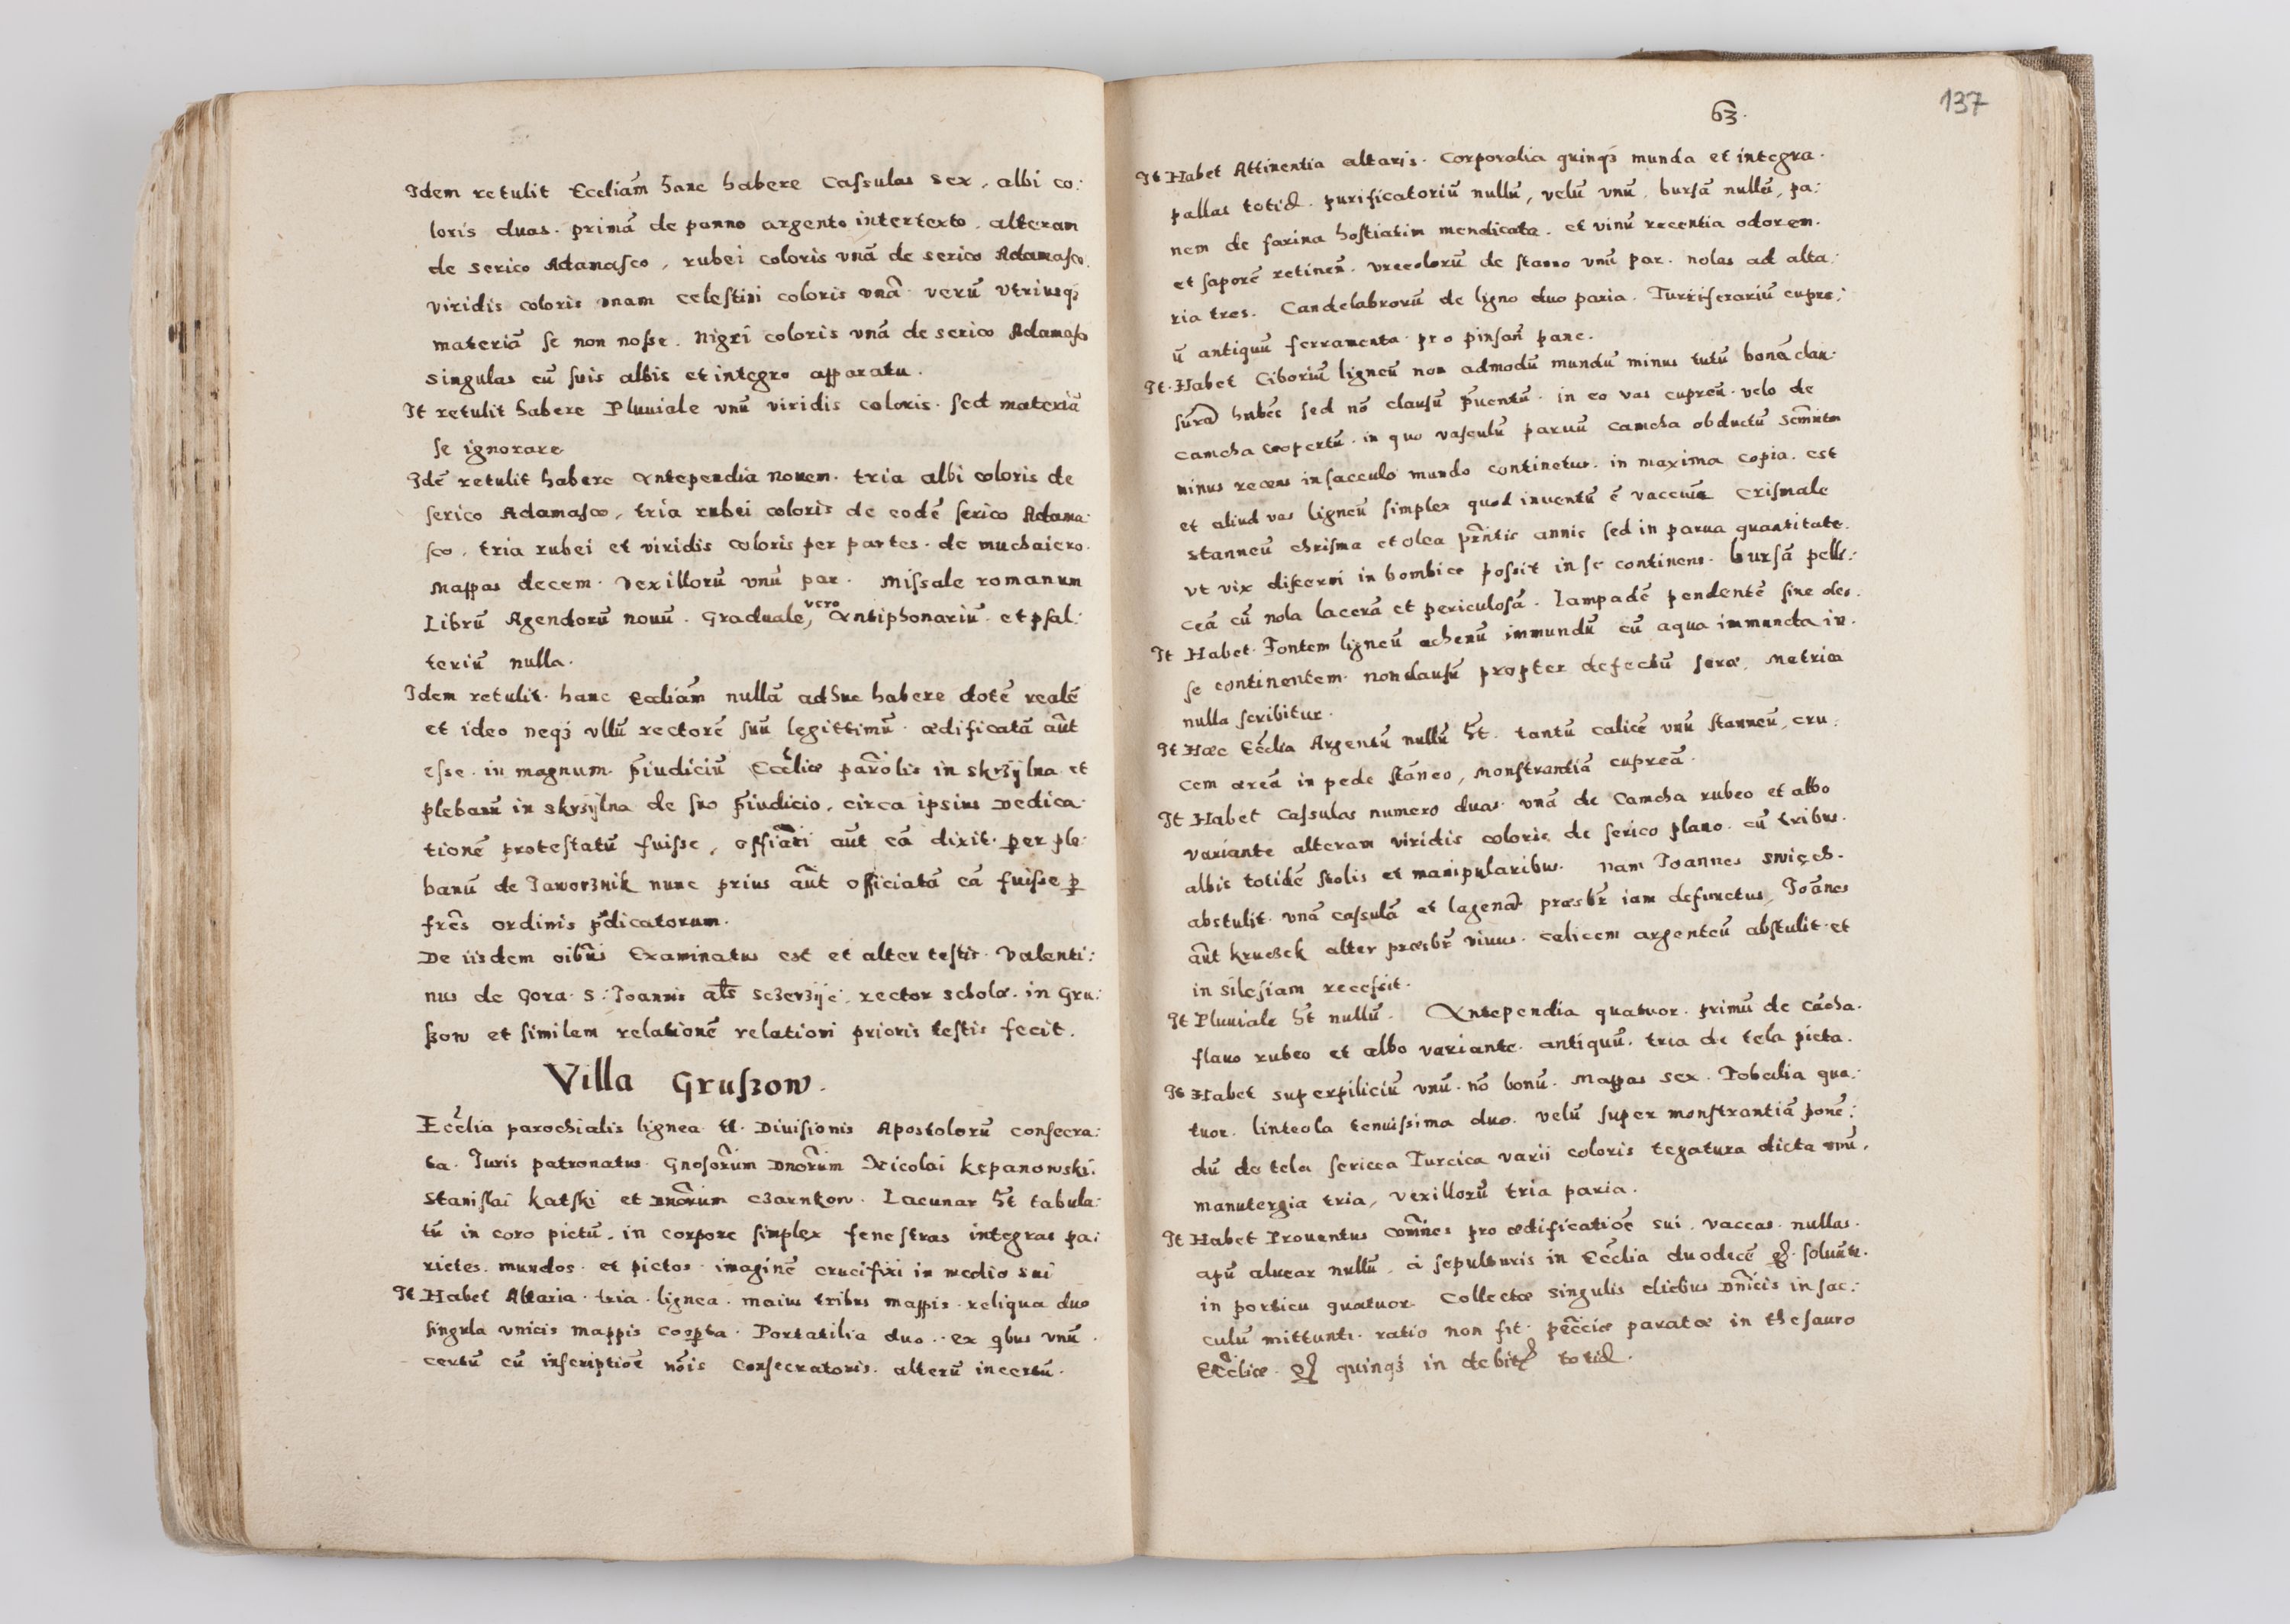 Idem retulit Eccliam hanc habere Cassulas sex, albi co:
loris duas. primā de panno argento intertexto. alteram
de serico Adamasco, rubei coloris vnā de serico Adamasco.
viridis coloris vnam celestini coloris vnā verū vtriusq;
materiā se non nosse. Nigri coloris vnā de serico Adamasco
singulas cū suis albis et integro apparatu.
It retulit habere Pluuiale vnū viridis coloris. sed materiā
se ignorare
Idē retulit habere Antependia nouem. tria albi coloris de
serico Adamasco, tria rubei coloris de eodē serico Adama:
sco, tria rubei et viridis coloris per partes. de muchaiero.
Mappas decem. Vexillorū vnū par. Missale romanum
Librū Agendorū nouū. Graduale, vero Antiphonariū et psal:
teriū nulla.
Idem retulit. hanc Eccliam nullā adhuc habere dotē realē
et ideo neq; vllū rectorē suū legittimū. ædificatā aūt
esse. in magnum p̄iudiciū Eccliæ parolis in Skrzijlna et
plebanū in Skrzijlna de suo p̄iudicio, circa ipsius Dedica:
tionē protestatū fuisse, offiari aūt eā dixit. per ple:
banū de Jaworznik nunc prius aūt officiatā eā fuisse p
fres ordinis p̄dicatorum.
De iisdem oibus Examinatus est et alter testis. Valenti:
nus de Gora. S: Joannis als Sczerzijc, rector scholæ. in Gru:
szow et similem relationē relationi prioris testis fecit.
Villa Gruszow.
Ecclia parochialis lignea tt. Diuisionis Apostolorū consecra:
ta. Juris patronatus. Gnosorum Dnorum Nicolai Kępanowski.
Stanislai Katski et Dnorum Czarnkow. Lacunar ht tabula:
tū in coro pictū. in corpore simplex fenestras integras pa:
rietes. mundos. et pictos. imaginē crucifixi in medio sui
It Habet Altaria. tria. lignea. maius tribus mappis. reliqua duo
singula vnicis mappis coopta. Portatilia duo. ex qbus vnū.
certū cū inscriptioē nois Consecratoris. alterū incertū.
63. 137
It Habet Attinentia altaris. Corporalia quinq; munda et integra.
pallas totid. purificatoriū nullū, velū vnū, bursā nullā, pa:
nem de farina hostiatim mendicata. et vinū recentia odorem.
et saporē retinen. vrceolorū de stanno vnū par. nolas ad alta:
ria tres. Candelabrorū de ligno duo paria. Turriferariū cupre:
ū antiquū ferramenta pro pinsan pane.
It. Habet Ciboriū ligneū non admodū mundū minus tutū bonā clau:
surā habes sed nō clausū p̄uentū. in eo vas cupreū. velo de
camcha coopertū. in quo vasculū paruū camcha obductū
minus recens in sacculo mundo continetur. in maxima copia. est
et aliud vas ligneū simplex quod inuentū ē vaccuū Crismale
stanneū chrisma et olea pn̄tis annis sed in parua quantitate.
vt vix discerni in bombice possit in se continens. bursā pelli:
ceā cū nola lacerā et periculosā. lampadē pendentē sine oleo.
It Habet. Fontem ligneū immundū cū aqua immuncta in
se continentem. non clausū propter defectū seræ. Metrica
nulla scribitur.
It Hæc Ecclia Argentū nullū ht. tantū calicē vnū stanneū, cru:
cem æreā in pede stāneo, monstrantiā cupreā.
It Habet Cassulas numero duas. vnā de Camcha rubeo et albo
variante alteram viridis coloris de serico plano. cū tribus.
albis totidē stolis et manipularibus. nam Joannes Swięch.
abstulit. vnā cassulā et lagenā præsbr iam defunctus, Joānes
aūt Kruczek alter præsbr viuus. calicem argenteū abstulit et
in Silesiam recessit.
It Pluuiale ht nullū. Antependia quatuor. primū de Cācha.
flauo rubeo et albo variante. antiquū. tria de tela picta.
It Habet superpiliciū vnū. nō bonū. Mappas sex. Tobalia qua:
tuor. linteola tenuissima duo. velū super monstrantiā ponē:
dū de tela sericea Turcica varii coloris tegatura dicta vnū,
manutergia tria, vexillorū tria paria.
It Habet Prouentus omnes pro ædificatiōe sui. vaccas. nullas.
apū aluear nullū. a sepulturis in Ecclia duodecē. soluntr.
in porticu quatuor. Collectæ singulis diebus Dnicis in sac:
culū mittuntr. ratio non fit. pecciæ paratæ in thesauro
Eccliæ. quinq; in debit totid.